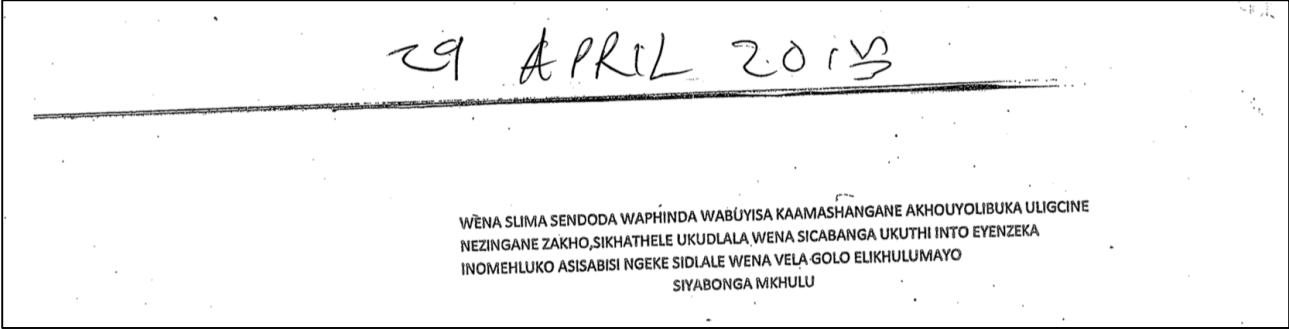 29 APRIL 2015
WENA SLIMA SENDODA WAPHINDA WABUYISA KAAMASHANGANE AKHOUYOLIBUKA ULIGCINE
NEZINGANE ZAKHO,SIKHATHELE UKUDLALA WENA SICABANGA UKUTHI INTO EYENZEKA
INOMEHLUKO ASISABISI NGEKE SIDLALE WENA VELA GOLO ELIKHULUMAYO
SIYABONGA MKHULU